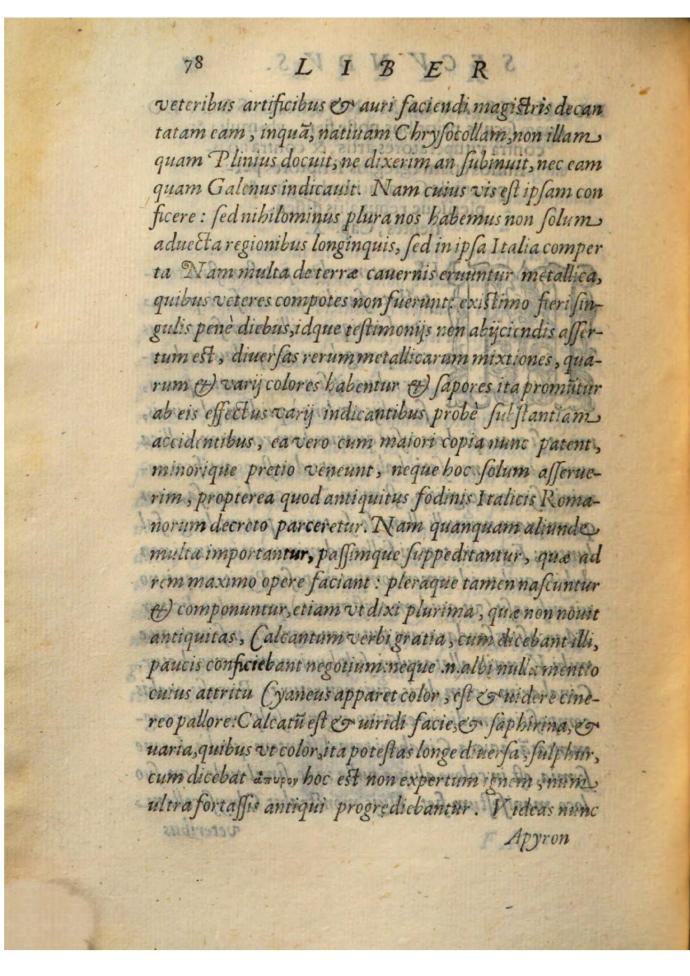 78 LIBER
veteribus artificibus & auri faciendi magistris decan
tatam eam, inquã, natiuam Chrysocollam, non illam
quam Plinius docuit, ne dixerim an subinuit, nec eam
quam Galenus indicauit. Nam cuius vis est ipsam con
ficere: sed nihilominus plura nos habemus non solum
aduecta regionibus longinquis, sed in ipsa Italia comper
ta Nam multa de terræ cauernis eruuntur metallica,
quibus veteres compotes non fuerunt: existimo fieri sin-
gulis penè diebus, idque testimonijs non abijciendis asser-
tum est, diuersas rerum metallicarum mixtiones, qua-
rum & varij colores habentur & sapores ita promũtur
ab eis effectus varij indicantibus probè substantiam
accidentibus, ea vero cum maiori copia nunc patent,
minorique pretio veneunt, neque hoc solum asserue-
rim, propterea quod antiquitus fodinis Italicis Roma-
norum decreto parceretur. Nam quanquam aliunde
multa importantur, passimque suppeditantur, quæ ad
rem maximo opere faciant: pleraque tamen nascuntur
& componuntur, etiam vt dixi plurima, quæ non nouit
antiquitas, Calcantum verbi gratia, cum dicebant illi,
paucis conficiebant negotium: neque .n. albi nulla mentio
cuius attritu Cyaneus apparet color, est & uidere cine-
reo pallore: Calcatũ est & uiridi facie, & saphirina, &
uaria, quibus vt color, ita potestas longe diuersa, sulphur,
cum dicebat ἄπυρον hoc est non expertum ignem, num
ultra fortassis antiqui progrediebantur. Videas nunc
Apyron